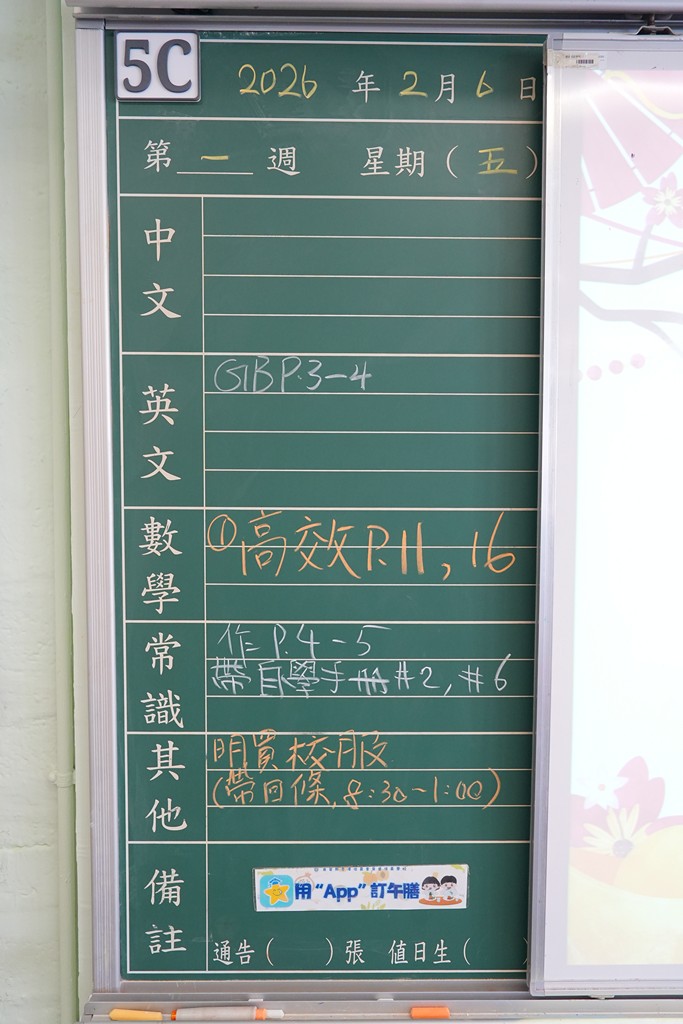 5C
2026 年 2 月 6 日
第 一 週 星期 ( 五 )
中文
英文
GB P.3-4
數學
① 高效 P.11, 16
常識
作二 P.4-5
帶自學手冊 #2, #6
其他
明買校服
(帶回條, 8:30-1:00)
備註
用“App”訂午膳
通告 ( ) 張 值日生 (